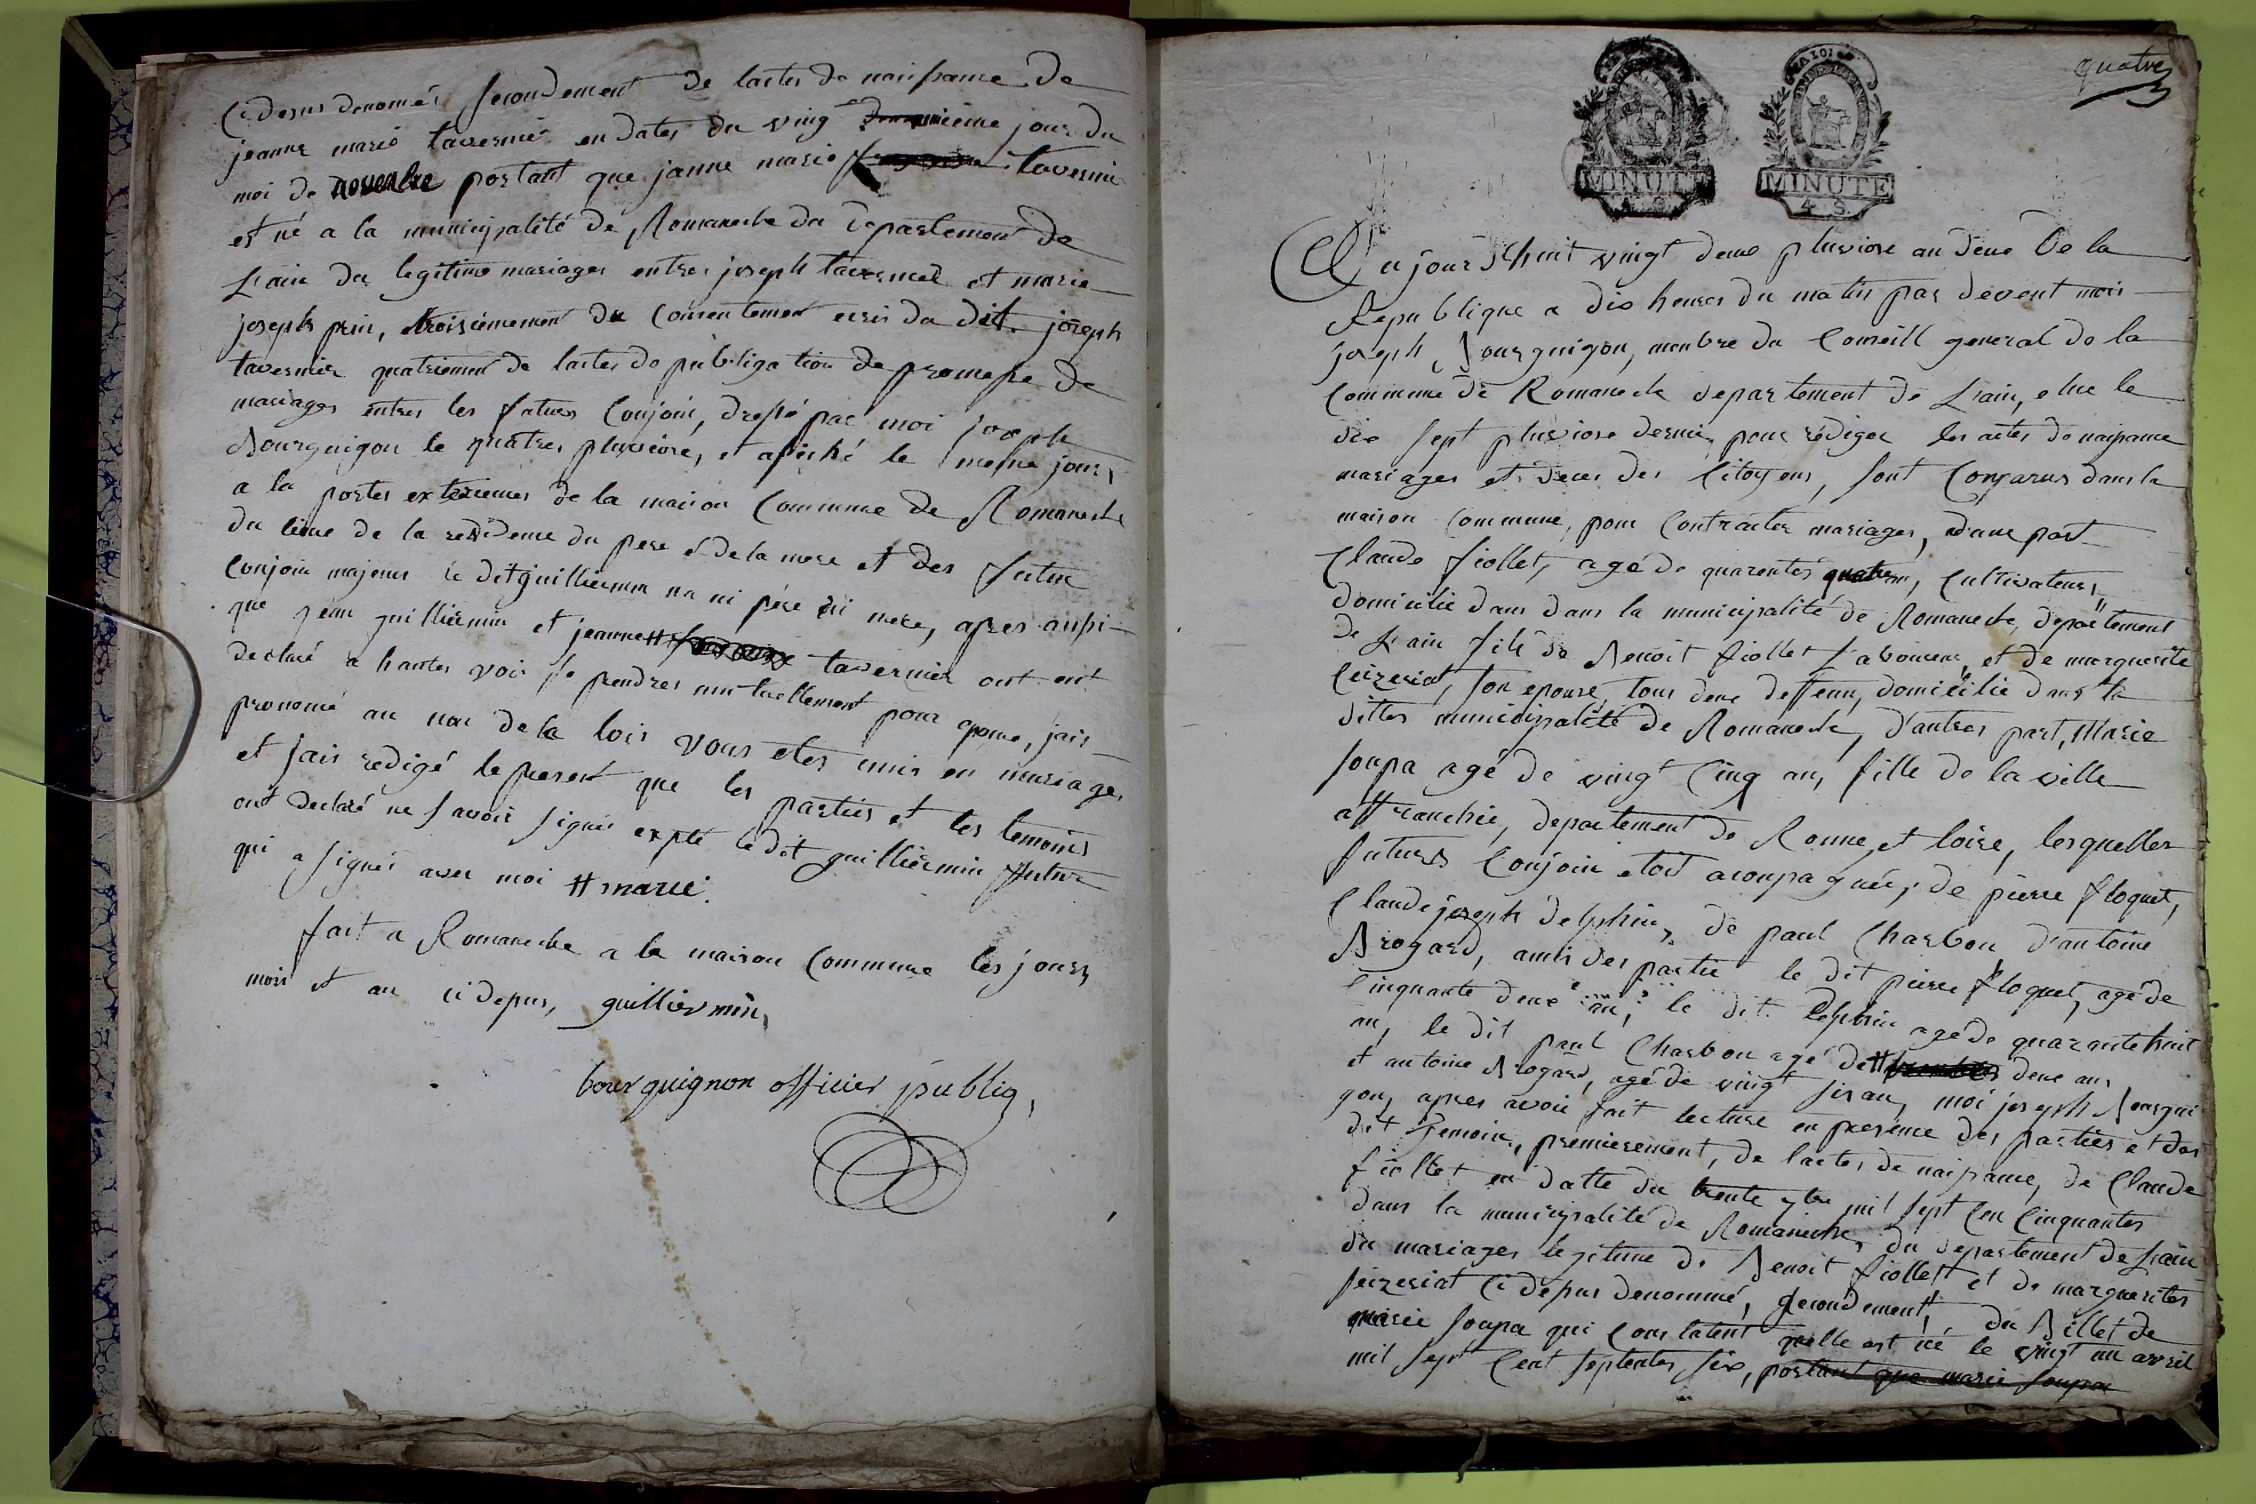 Cidesus denomés secondement de lactes de naissance de
jeanne marie tavernié en dates du ving jour du
moi de novenbre portant que janne marie tavernié
est né a la municipalité de Romaneche du Departement de
L'ain du legitime mariages entres joseph tavernié et marie
joseph prin, troisiemement du Consentement ecris du dit joseph
tavernier quatriement de lactes de publigation de promesse de
mariages entres les futures Conjoin, dressé par moi joseph
Bourguigon le quatres pluviose, et afiché le meme jour,
a la portes exterieures de la maison Commune de Romaneche
du lieue de la residence du pere et de la mere et des futur
Conjoin majeurs le dit guilliermin na ni père ni mere, apres aussi
que jean guilliermin et jeanne # tavernier ont eut
declaré a hautes vois se prendres mutuellement pour epoux, jais
prononcé au nom de la lois vous etes unis en mariage,
et jais redigé le present que les parties et les temoins
ont declaré ne savoir signer expté le dit guilliermin futur
qui a signer avec moi # marie.
fait a Romaneche a la maison Commune les jours
mois et an ci depus, guilliermin,
bourguignon officier publiq,
quatre
MINUTE
4. S.
MINUTE
4. S.
Aujourdhuit vingt deux pluviose an deux De la
Republique a dix heures du matin par devent mois
joseph Bourguigon, menbre du Conseill general de la
Commune de Romaneche departement de L'ain, elue le
dix sept pluviose dernier pour rédiger les actes de naissance
mariages et deces des Citoyens, sont Conparus dans la
maison Commune, pour Contracter mariages, dune part
Claude fiollet, agé de quarentes quatre an, Cultivateur,
domicilié dans dans la municipalité de Romaneche, departement
de L'ain fils de Benoit fiollet Laboureur, et de marguerite
Ceizeriat, son epouse, tous deux deffenu, domicilié dans la
dittes municipalité de Romaneche, d'autres part, Marie
soupa agé de vingt Cinq an, fille de la ville
affranchie, departement de Ronne et loire, lesquelles
futures Conjoin etoit aconpagnée, de pierre floquet,
Claude joseph delphin, de paul Charbon, d'antoine
Brogard, amis des partie le dit pierre floquet, agé de
Cinquante deux an, le dit delphin agé de quarante huit
an, le dit paul Charbon agé de # deux ans
et antoine Brogard, agé de vingt six an, moi joseph Bourgui
gon, apres avoir fait lecture en presence des parties et des
dit temoin, premierement, de lactes de naissance, de Claude
fiollet en datte du trente 7bre mil sept Cen Cinquantes
dans la municipalité de Romaneche, du departement de L'ain
du mariages legitime de Benoit fiollet et de marguerites
seizeriat Ci depus denommé, secondement, du Billet de
marie soupa qui Constatent quelle est né le vingt un avril
mil sept Cent septentes six, portant que marie soupa